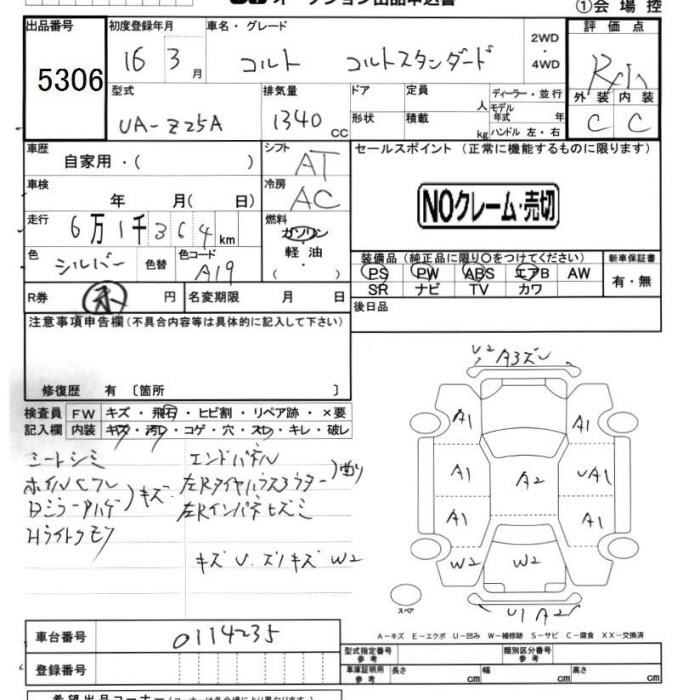 オークション出品申込書
①会場控
出品番号 5306
初度登録年月 16 3月
車名・グレード コルト コルトスタンダード
2WD・4WD
評価点
外装 内装
C C
型式 UA-Z25A
排気量 1340 CC
ドア 形状
定員 人
積載 kg
ディーラー・並行
モデル年式 年
ハンドル 左・右
車歴 自家用・( )
シフト AT
セールスポイント (正常に機能するものに限ります)
NOクレーム・売切
車検 年 月( 日)
冷房 AC
走行 6万1千364km
燃料 ガソリン・軽油・( )
色 シルバー 色替
色コード A19
装備品 (純正品に限り○をつけてください)
新車保証書
PS PW ABS エアB AW
SR ナビ TV カワ
有・無
R券 未 円
名変期限 月 日
後日品
注意事項申告欄 (不具合内容等は具体的に記入して下さい)
修復歴 有 〔箇所 〕
検査員 FW キズ・飛石・ヒビ割・リペア跡・×要
記入欄 内装 キズ・汚レ・コゲ・穴・スレ・キレ・破レ
シートシミ
キズ
Hライトクモリ
エンドパネル
曲り
キズ U.スリキズ W2
U2 A3ズレ
A1
A1
A1
A2
UA1
A1
A1
W2
W2
W2
U1 A2
スペア
A-キズ E-エクボ U-凹み W-補修跡 S-サビ C-腐食 XX-交換済
車台番号 0114235
登録番号
型式指定番号 参考
類別区分番号 参考
車庫証明用 参考 長さ cm 幅 cm 高さ cm
希望出品コーナー